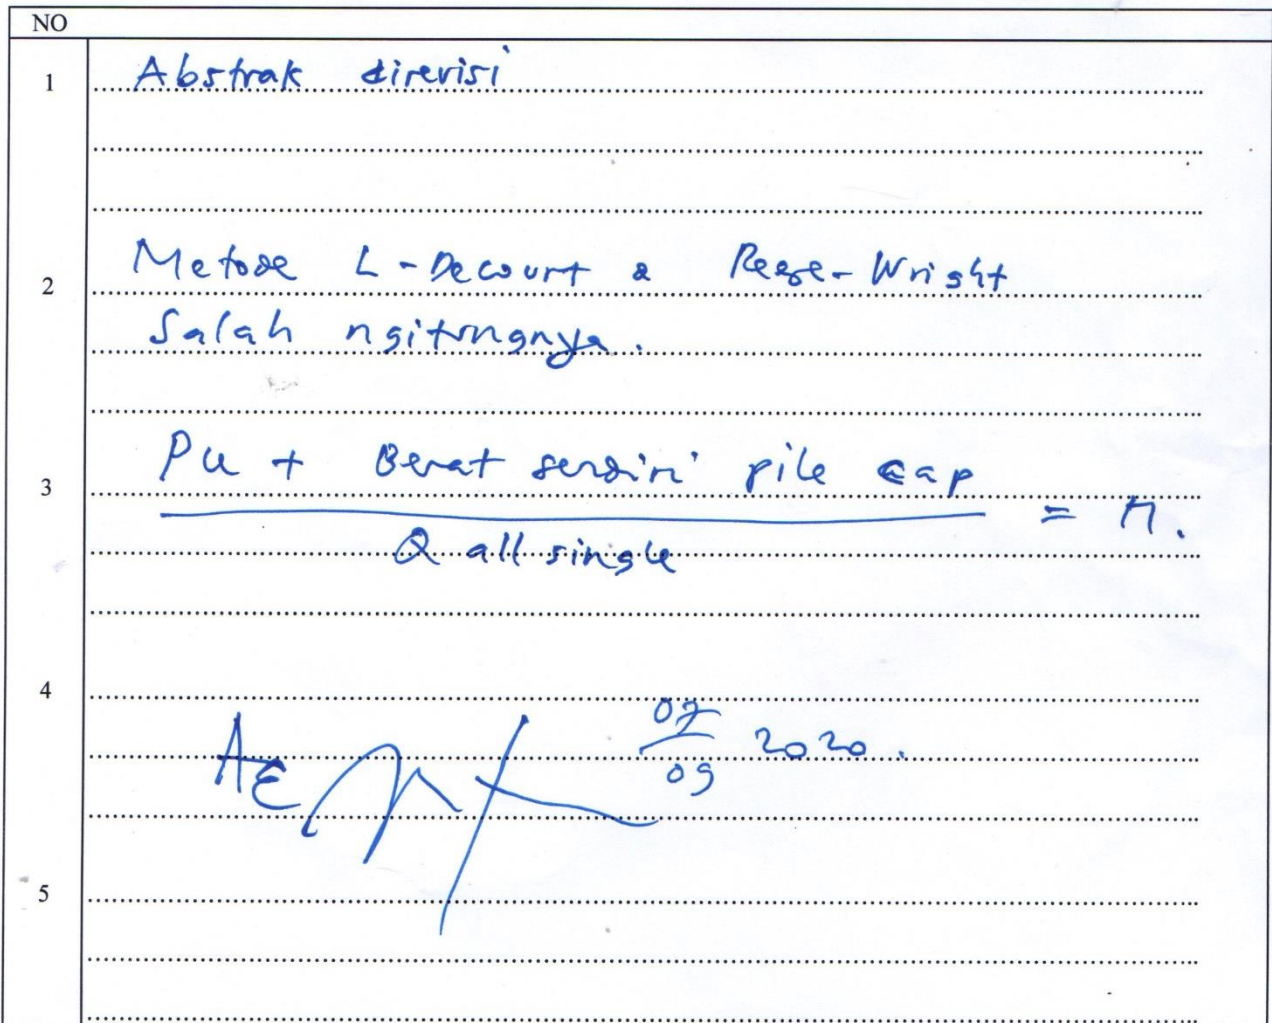 NO
1 Abstrak direvisi
2 Metode L-Decourt & Reese-Wright
Salah ngitungnya.
3 Pu + Berat sendiri pile cap = n.
Q all single
4
07
09 2020.
5